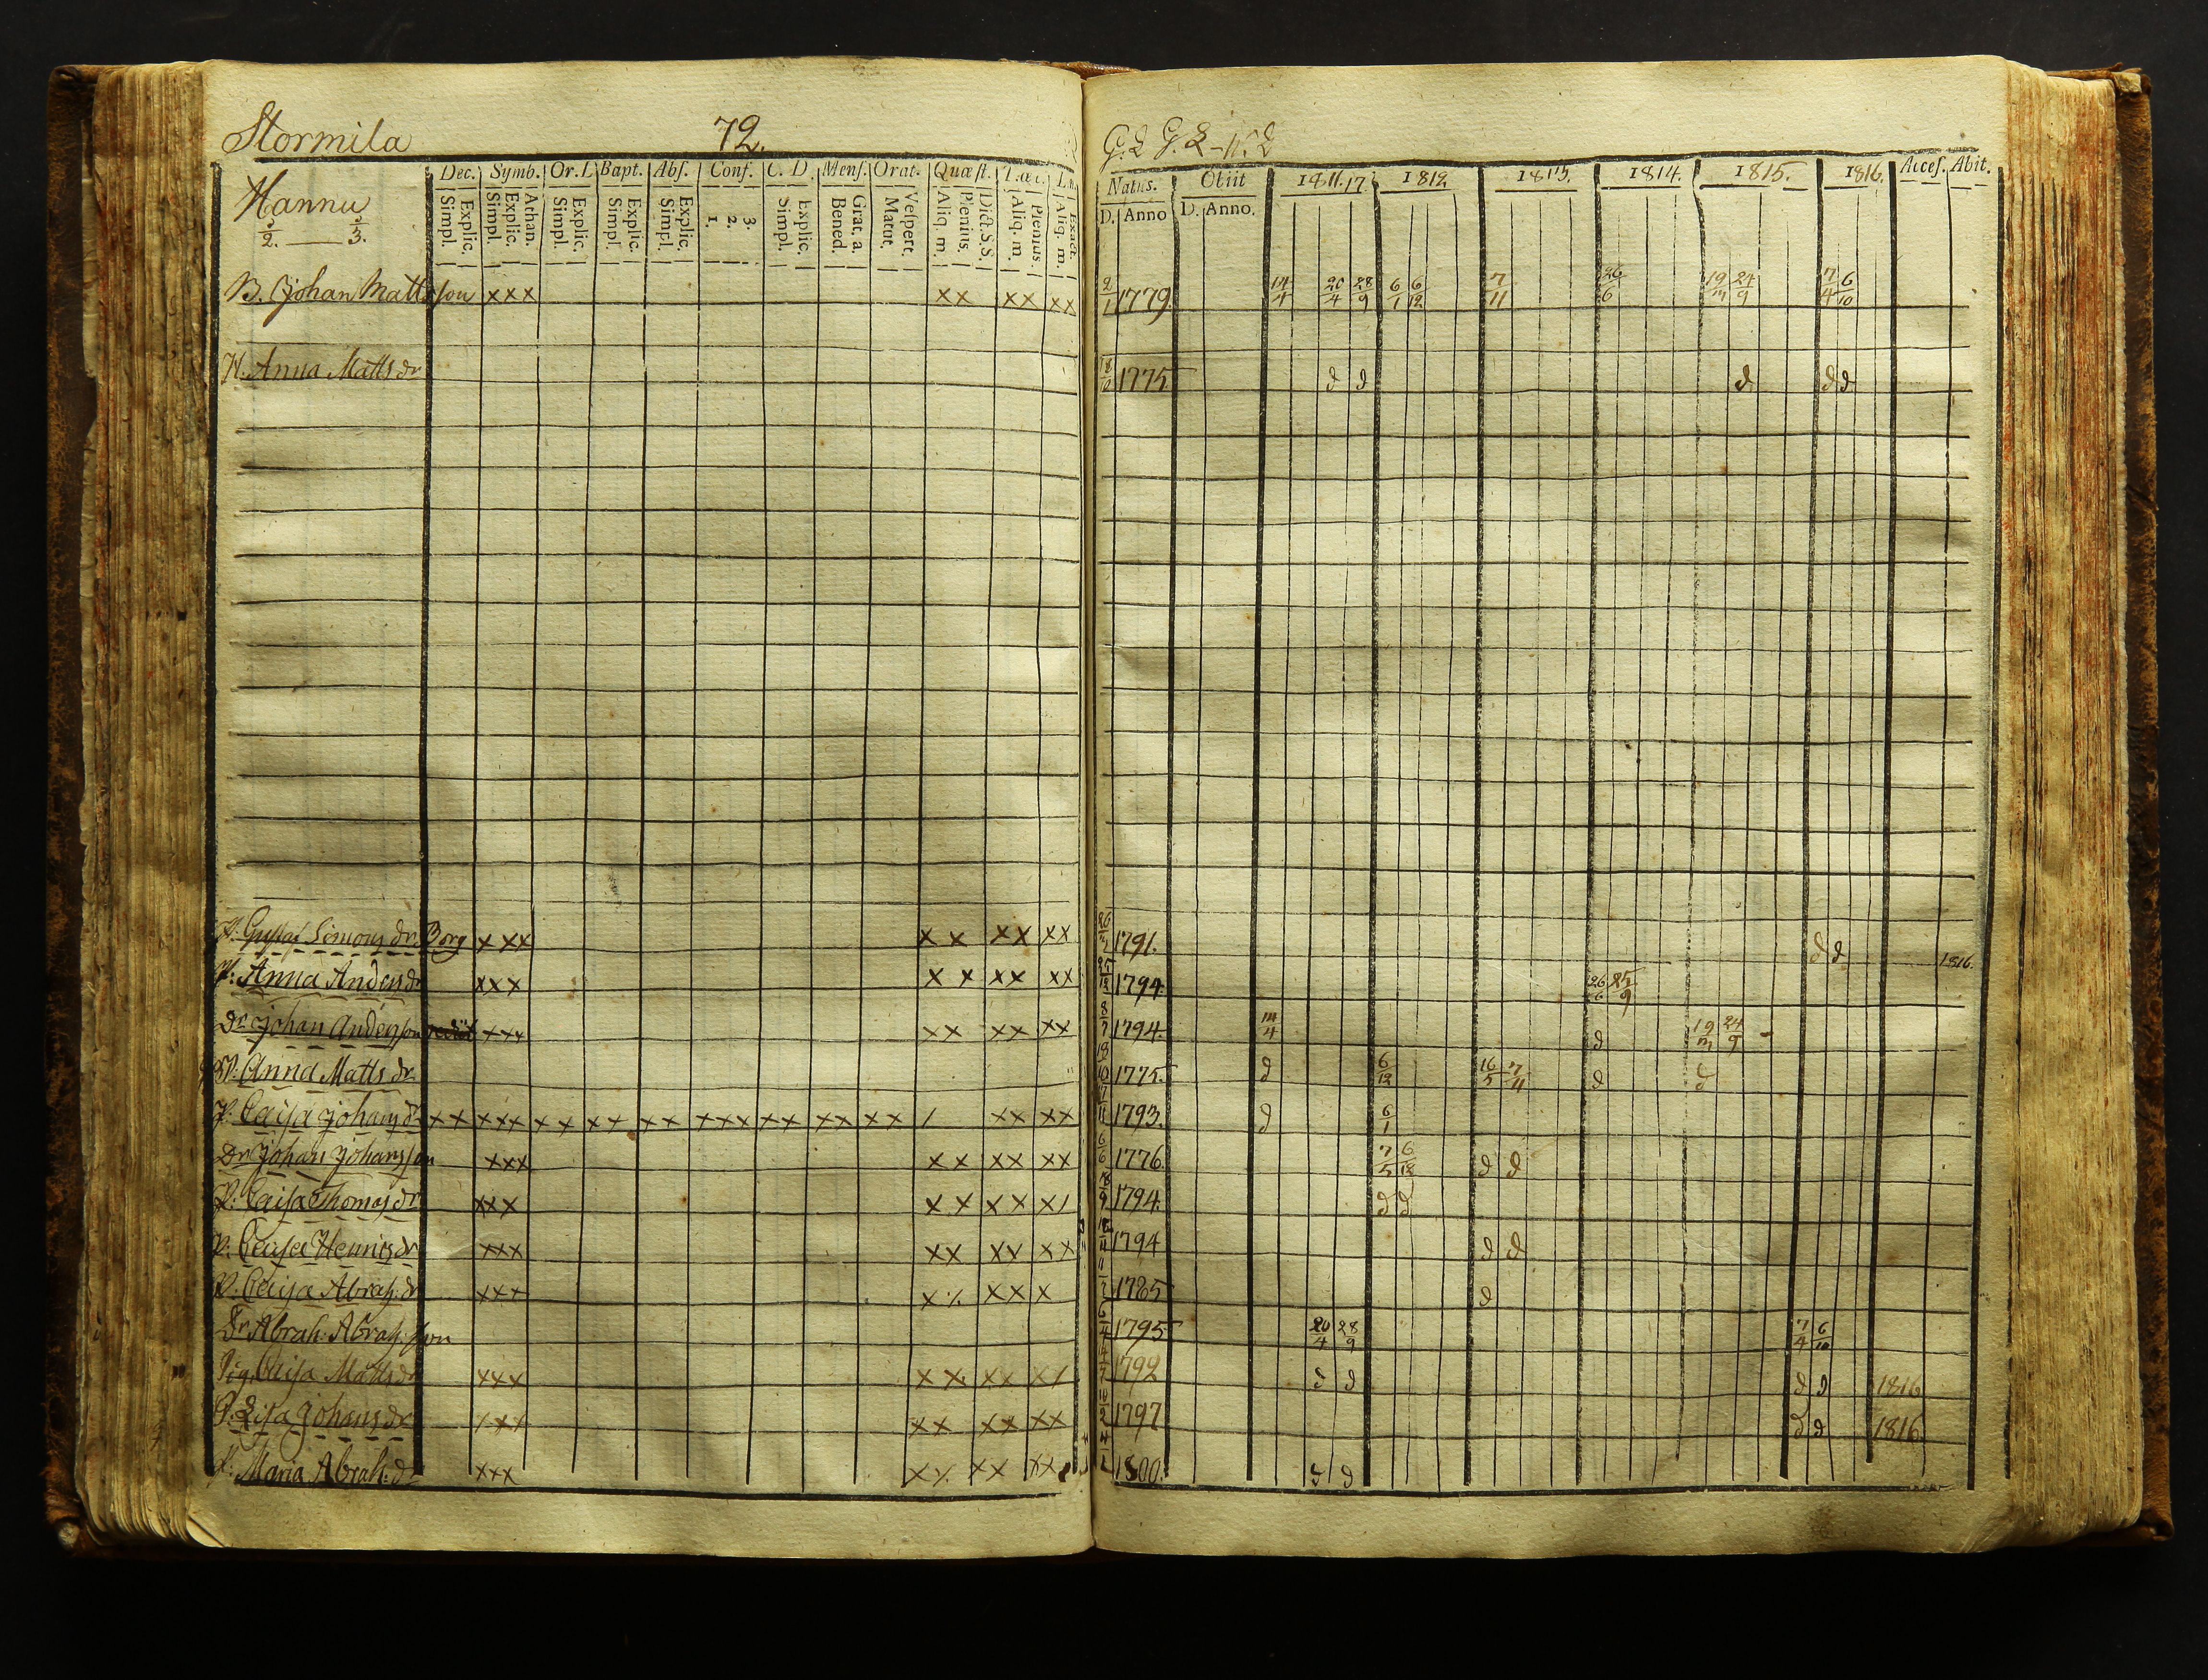 Stormila 72.
Hannu
Dec. Symb. Or. L Bapt. Abs. Conf. C. D. Mens. Orat. Quæst.
Explic. Simpl. Athan. Explic. Simpl. Explic. Simpl. Explic. Simpl. Explic. Simpl. 3. 2. 1. Explic. Simpl. Grat. a. Bened. Vespert. Matut. Dict. S. S. Plenius. Aliq. m. Plenius. Aliq. m. Exact. Aliq. m.
Natus. Obiit 1811. 17. 1812 1813. 1814. 1815. 1816. Acces. Abit.
D. Anno D. Anno.
B. Johan Mattsson xxx xx xx xx 2/1 1779 14/4 20/4 28/9 6/1 6/12 7/11 26/6 19/m 24/9 7/4 6/10
H. Anna Matts dr 18/10 1775 d d d d d
P. Gustaf Simons dr. Borg x xx x x xx xx 1791. d d
P. Anna Anders dr xxx x x xx xx 1794. 26/6 25/9 1816.
Dr Johan Andersson xxx xx xx xx 8/7 1794. 14/4 d 19/m 24/9 -
H. Anna Matts dr 1775. d 6/12 16/5 7/11 d d
P. Caisa Johans dr xx xxx xx xx xx xxx xx xx xx / xx xx 1793. d 6/1
Dr Johan Johansson xxx xx xx xx 6/6 1776. 7/5 6/12 d d
P. Caisa Thomas dr xxx x x x x x/ 1794. d d
P. Caisa Henrics dr xxx xx xx xx 1794 d d
P. Caisa Abrah. dr xxx x ⁒ xxx 1785 d
Dr Abrah. Abrah.son 6/4 1795 20/4 28/9 7/4 6/10
Pig. Caisa Matts dr xxx xx xx x/ 1792 d d d d 1816
P. Lisa Johans dr xxx xx xx xx 1797 d d 1816.
P. Maria Abrah. dr xxx x ⁒ xx xx 1800. d d